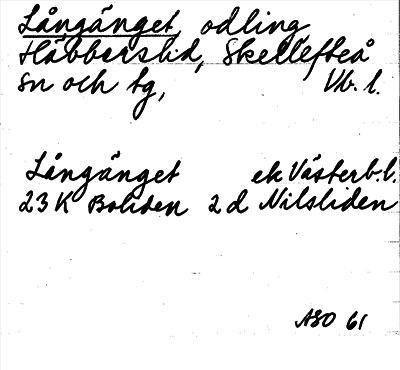 Långänget, odling
Häbberslid, Skellefteå
sn och tg, Vb. l.
Långänget ek Västerb. l.
23 K Boliden 2 d Nilsliden
ASO 61